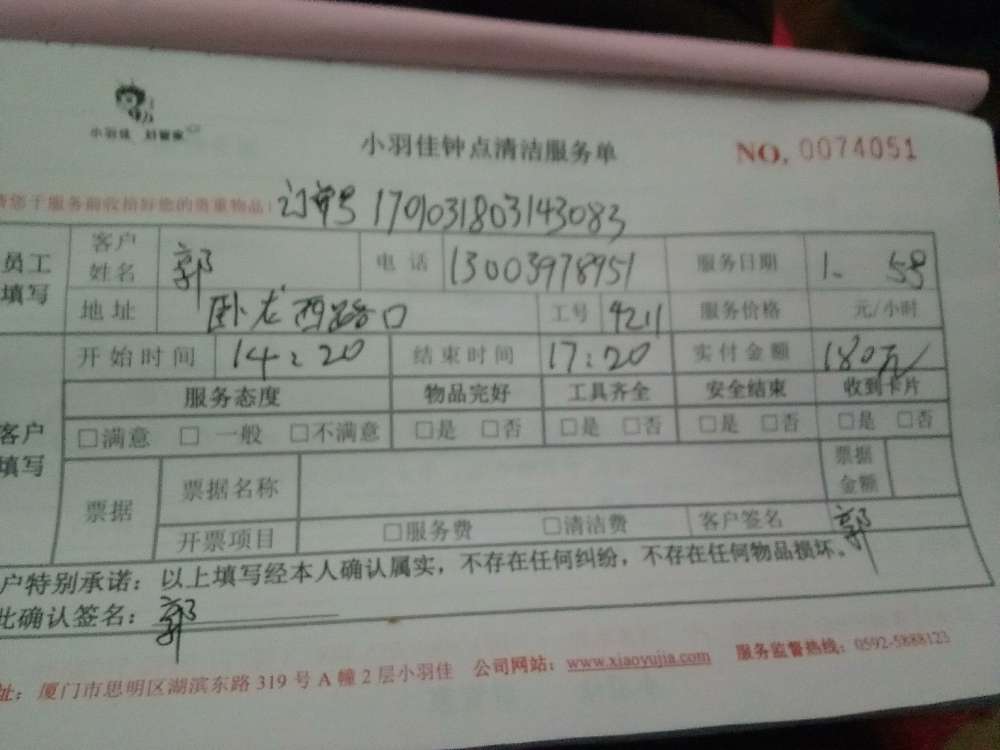 小羽佳 好管家
小羽佳钟点清洁服务单
NO. 0074051
您于服务前收拾好您的贵重物品! 订单号 1701031803143083
员工填写 客户姓名 郭 电话 13003978951 服务日期 1.
地址 卧龙西路口 工号 4211 服务价格 元/小时
客户填写 开始时间 14:20 结束时间 17:20 实付金额 180元
服务态度 物品完好 工具齐全 安全结束 收到卡片
□满意 □一般 □不满意 □是 □否 □是 □否 □是 □否 □是 □否
票据 票据名称 票据金额
开票项目 □服务费 □清洁费 客户签名 郭
户特别承诺：以上填写经本人确认属实，不存在任何纠纷，不存在任何物品损坏。
此确认签名：郭
址：厦门市思明区湖滨东路319号A幢2层小羽佳 公司网站：www.xiaoyujia.com 服务监督热线：0592-5888123